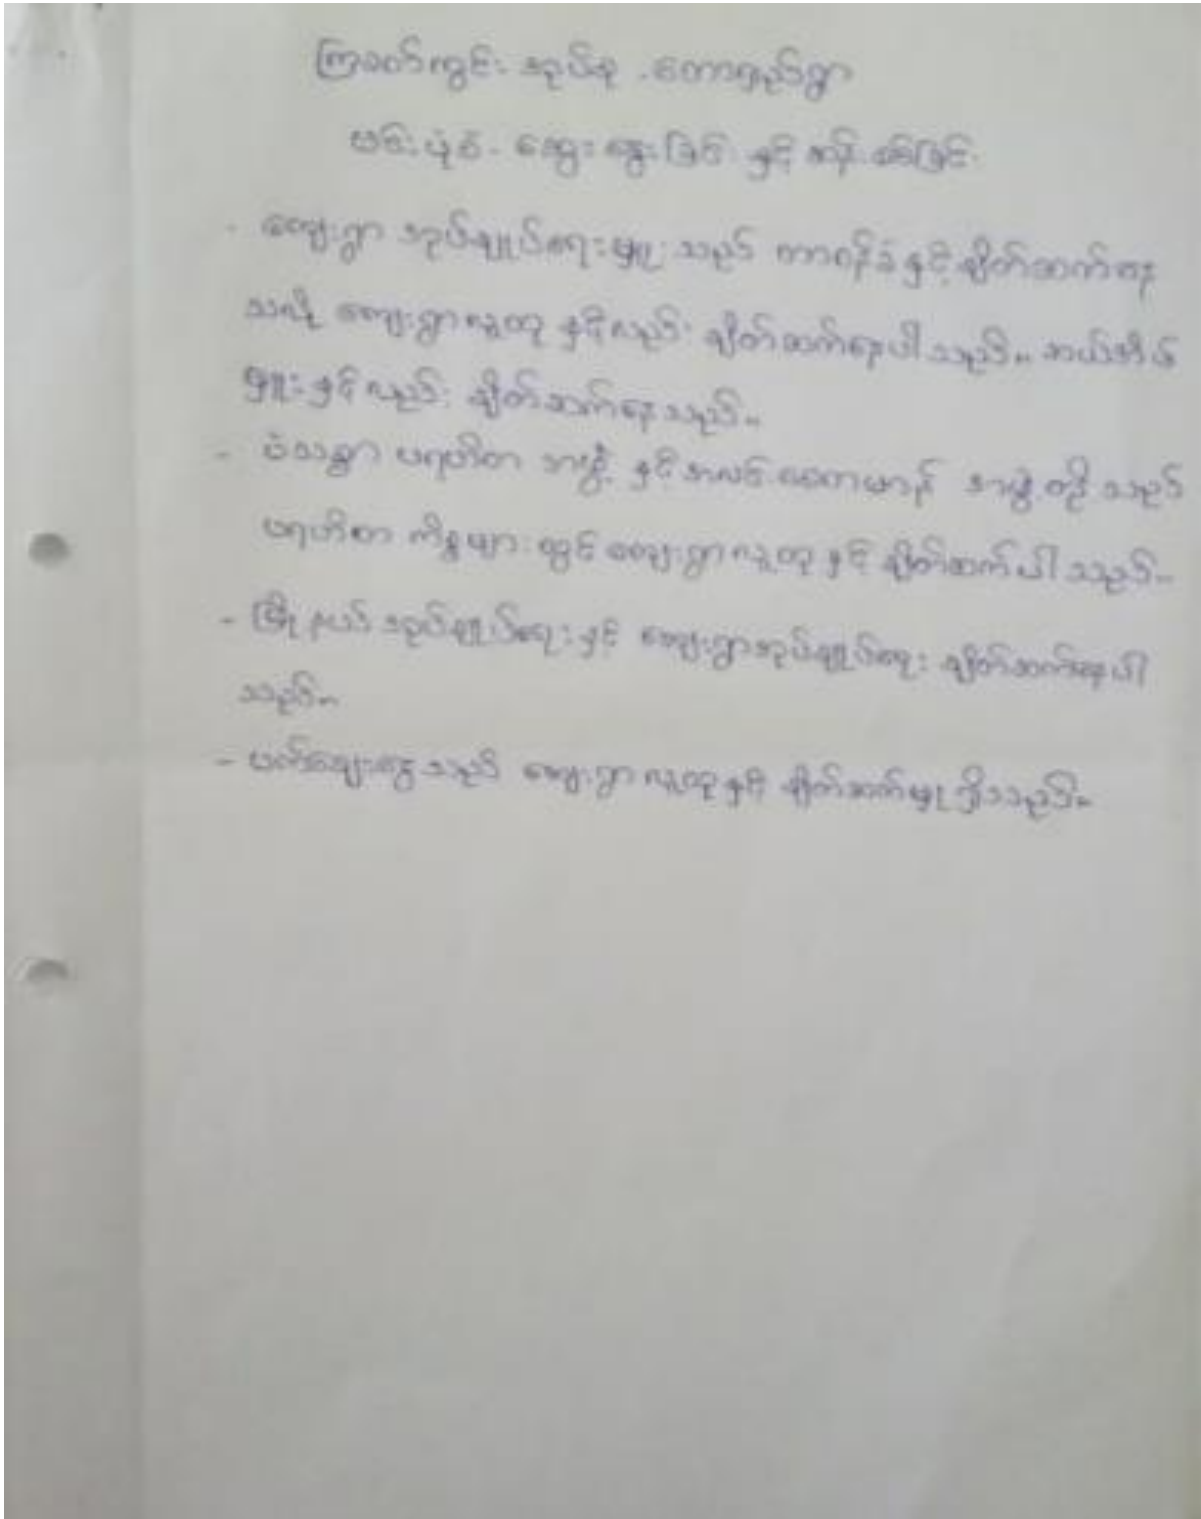 ကြခတ်ကွင်း အုပ်စု . တောရှည်ရွာ
ဗင်းပုံစံ - ဆွေးနွေးခြင်း နှင့် ဆန်းစစ်ခြင်း
- ကျေးရွာ အုပ်ချုပ်ရေးမှူး သည် တာဝန်ခံ နှင့် ချိတ်ဆက်နေ
သလို ကျေးရွာလူထု နှင့်လည်း ချိတ်ဆက်နေပါသည်။ ဆယ်အိမ်
မှူး နှင့်လည်း ချိတ်ဆက်နေသည်။
- ပရဟိတ အဖွဲ့ နှင့် အလင်း အဖွဲ့တို့ သည်
ပရဟိတ ကိစ္စများ တွင် ကျေးရွာလူထု နှင့် ချိတ်ဆက်ပါသည်။
- မြို့နယ် အုပ်ချုပ်ရေး နှင့် ကျေးရွာအုပ်ချုပ်ရေး ချိတ်ဆက်နေပါ
သည်။
- မတ်ချေးငွေ သည် ကျေးရွာလူထု နှင့် ချိတ်ဆက်မှု ရှိသည်။